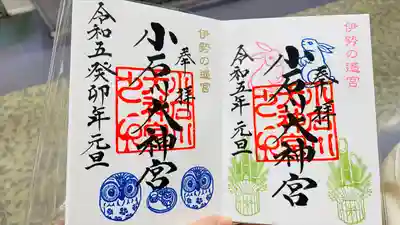 伊勢の遥宮
奉拝
小石川大神宮
令和五年元旦
伊勢の遥宮
奉拝
小石川大神宮
令和五癸卯年元旦